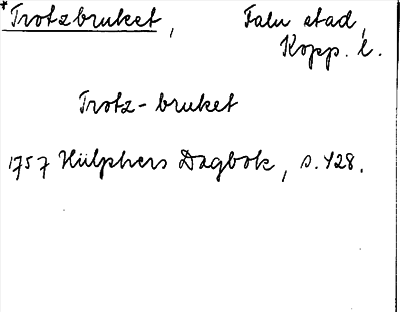 *Trotzbruket, Falu stad,
Kopp. l.
Trotz-bruket
1757 Hülphers Dagbok, s. 428.